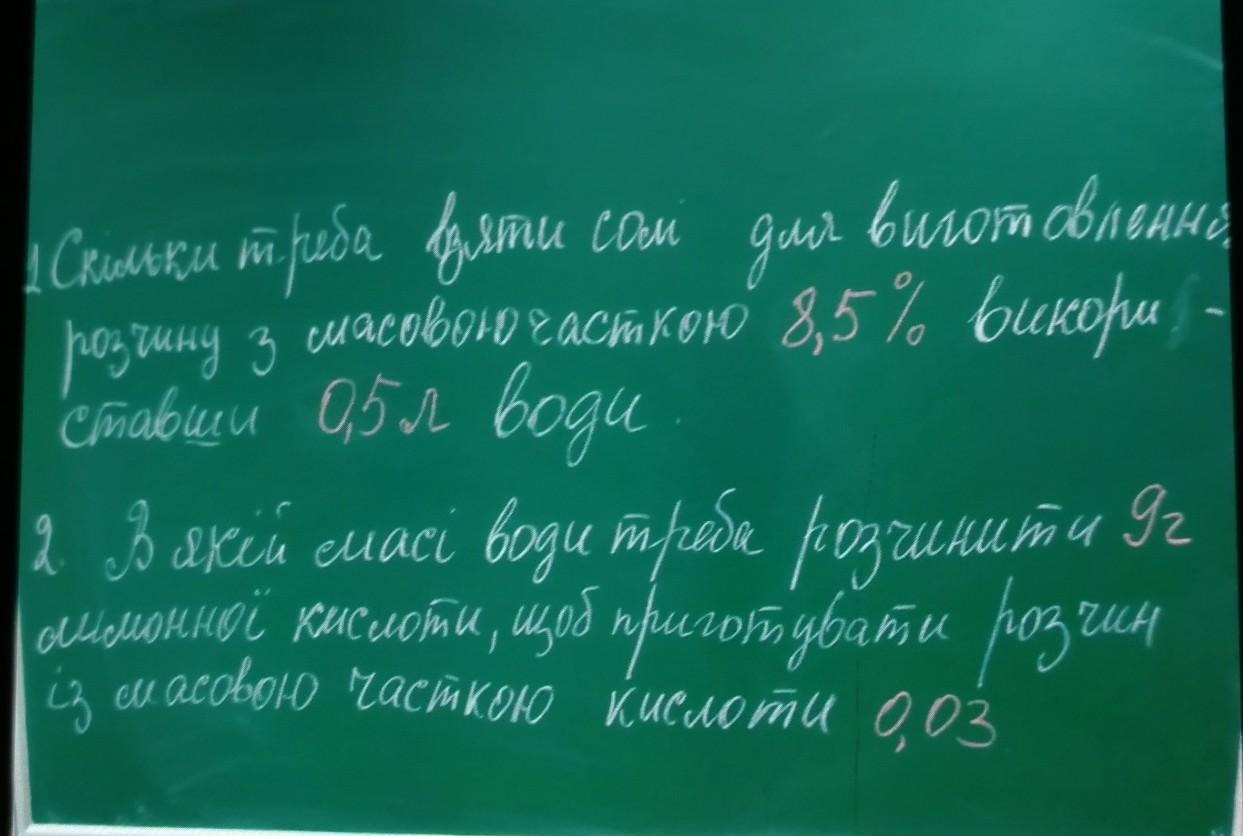 1 Скільки треба взяти солі для виготовлення
розчину з масовою часткою 8,5% викори-
ставши 0,5 л води.
2. В якій масі води треба розчинити 9г
лимонної кислоти, щоб приготувати розчин
із масовою часткою кислоти 0,03